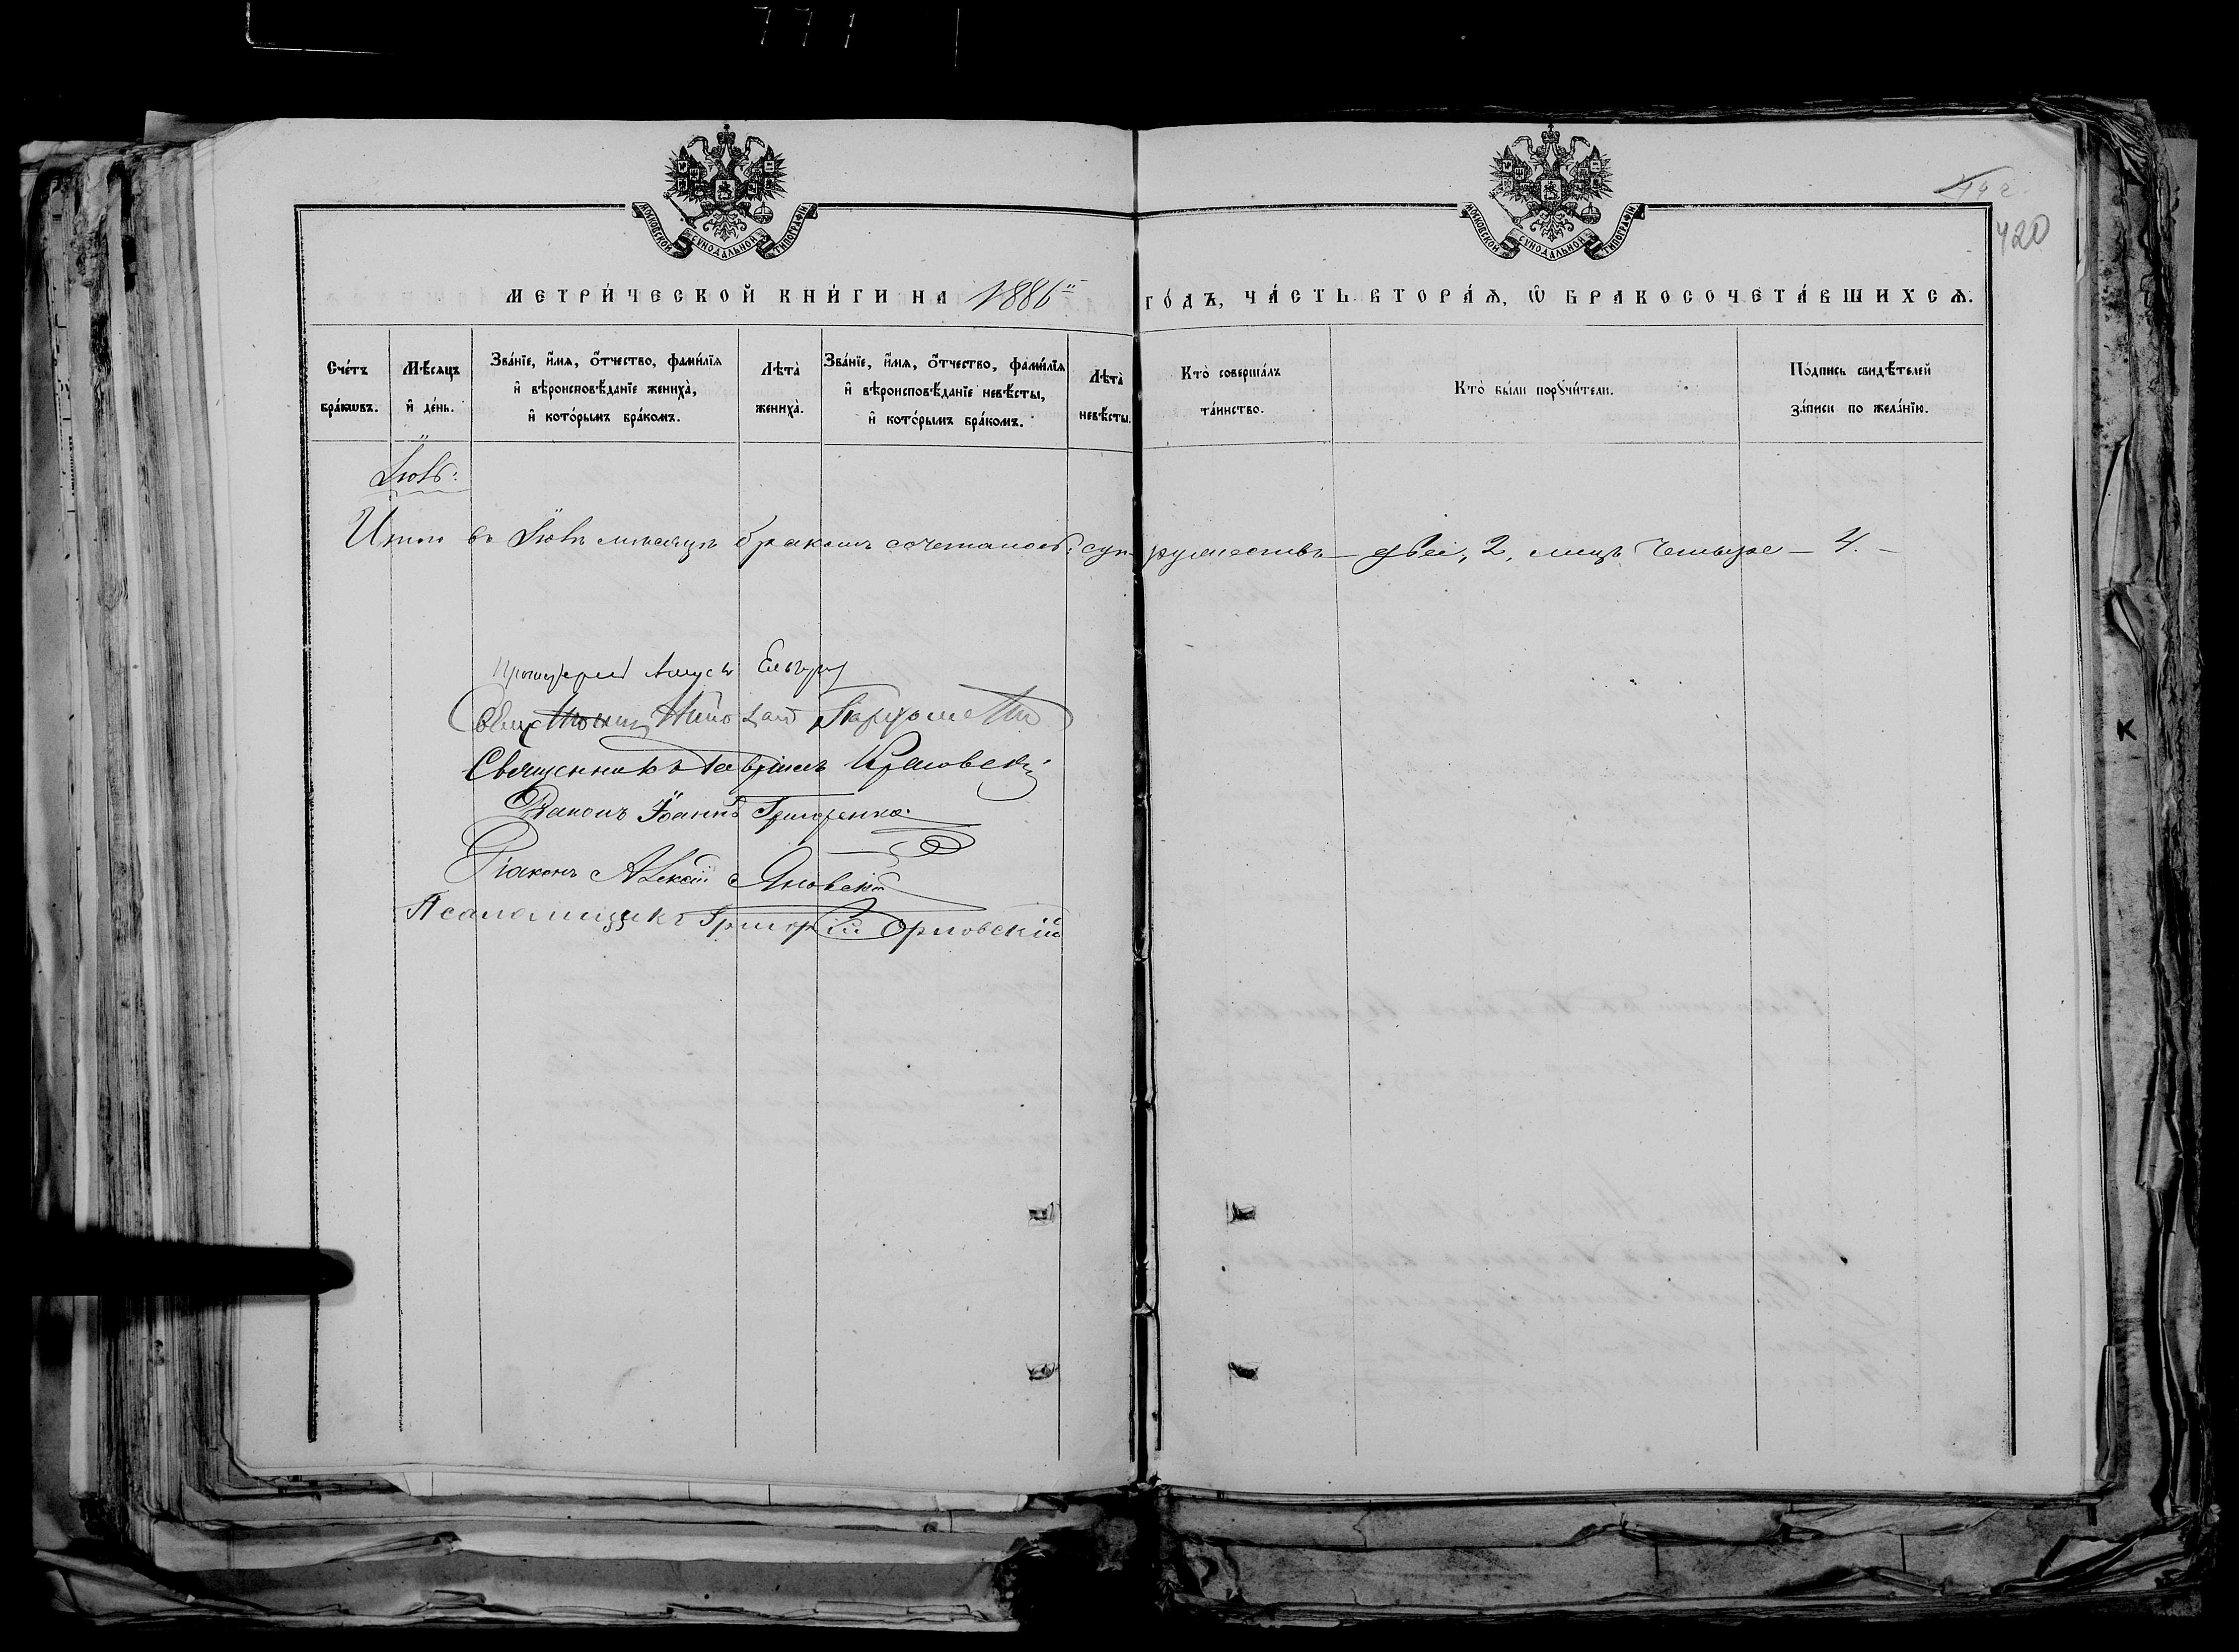 771
МОСКОВСКОЙ СѴНОДАЛЬНОЙ ТИПОГРАФІИ
МОСКОВСКОЙ СѴНОДАЛЬНОЙ ТИПОГРАФІИ
420
МЕТРИ́ЧЕСКОЙ КНИ́ГИ НА 1886й ГО́ДЪ, ЧА́СТЬ ВТОРА́Ѧ, Ѽ БРАКОСОЧЕТА́ВШИХСѦ.
Сче́тъ бра́кѡвъ.
Мѣ́сѧцъ и҆ де́нь.
Зва́нїе, и҆́мѧ, ѻ҆́тчество, фами́лїѧ и҆ вѣроисповѣ́данїе жениха̀, и҆ кото́рымъ бра́комъ.
Лѣта̀ жениха̀.
Зва́нїе, и҆́мѧ, ѻ҆́тчество, фами́лїѧ и҆ вѣроисповѣ́данїе невѣ́сты, и҆ кото́рымъ бра́комъ.
Лѣта̀ невѣ́сты.
Кто̀ соверша́лъ та́инство.
Кто̀ бы́ли порꙋчи́тели.
По́дпись свидѣ́телей за́писи по жела́нїю.
Итого въ мѣсяцѣ бракомъ сочеталось: супружествъ – двѣ, 2, лицъ четыре – 4. –
Протоіерей
Священникъ Николай
Священникъ Гавріилъ
Діаконъ Іоаннъ Григоренко
Діаконъ Алексій Яновскій
Псаломщикъ Григорій Орловскій
К